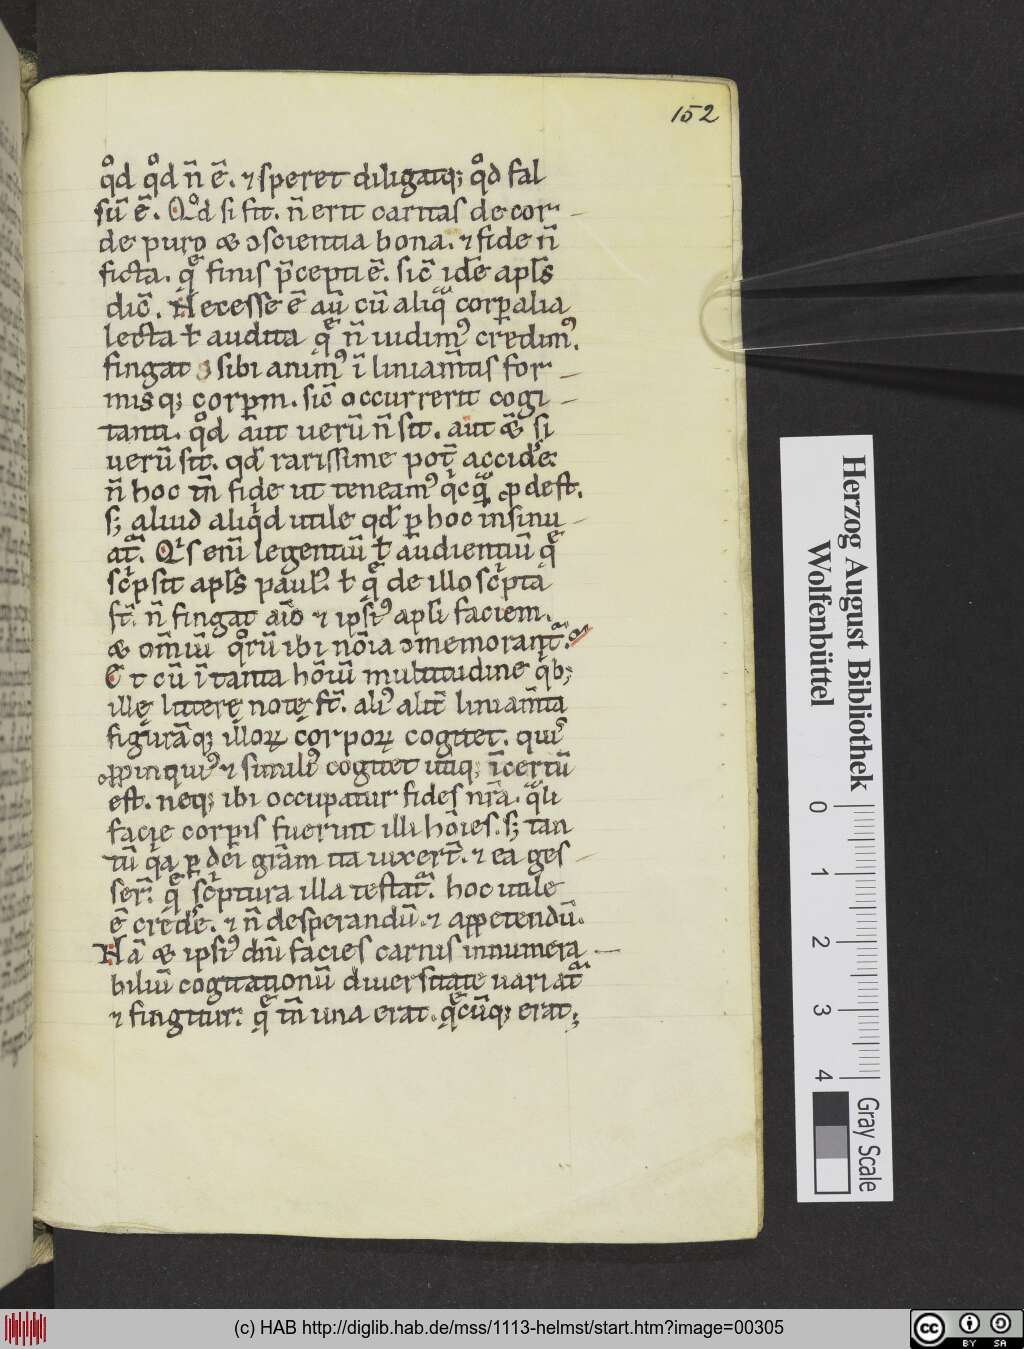 152
q̊d q̊d n̄ ē. ⁊ speret diligatq; q̊d fal
sū ē. Q̊d si fit. n̄ erit caritas de cor
de puro & ↄscientia bona. ⁊ fide n̄
ficta. q̄ finis p̄cepti ē. sic̄ idē apl̄s
dic̄. Necesse ē aū cū aliq̄ corꝑalia
lecta ł audita q̄ n̄ uidim᾽ credim᾽.
fingat sibi anim᾽ ī liniam̄tis for
misq; corpm. sic̄ occurrerit cogi
tanti. q̊d aūt uerū n̄ sit. aūt & si
uerū sit. qd̄ rarissime pot̄ accidē
n̄ hoc tn̄ fide ut teneam᾽ qͥcq̄ ꝓdest.
s; aliud aliqͥd utile qd̄ ꝑ hoc insinu
at̄. Qͥs eni legentiū ł audientiū q̄
scͥpsit apl̄s paul᾽ ł q̄ de illo scͥpta
st̄. n̄ fingat aīo ⁊ ipsi᾽ apl̄i faciem.
& om̄iū qͦrū ibi no͞ia ↄmemorant̄.
Et cū ī tanta ho͞iū multitudine qͥb;
illę litterę notę st̄. ali᾽ alit̄ liniam̄ta
figurāq; illoꝝ corpoꝝ cogitet. qui᾽
ꝓpinqui᾽ ⁊ simili᾽ cogitet utiq; īcertū
est. neq; ibi occupatur fides nr̄a. qͣli
facie corpis fuerint illi ho͞ies. s; tan
tū qͥa ꝑ dei gr̄am ita uixer̄t. ⁊ ea ges
ser̄. q̄ scͥptura illa testat̄. hoc utile
ē credē. ⁊ n̄ desperandū. ⁊ appetendū.
Nā & ipsi᾽ dn̄i facies carnis innumera
biliū cogitationū diuersitate uariat̄
⁊ fingitur. q̄ tn̄ una erat. q̄cūq; erat;
Herzog August Bibliothek
Wolfenbüttel
0 1 2 3 4
Gray Scale
(c) HAB http://diglib.hab.de/mss/1113-helmst/start.htm?image=00305
cc BY SA